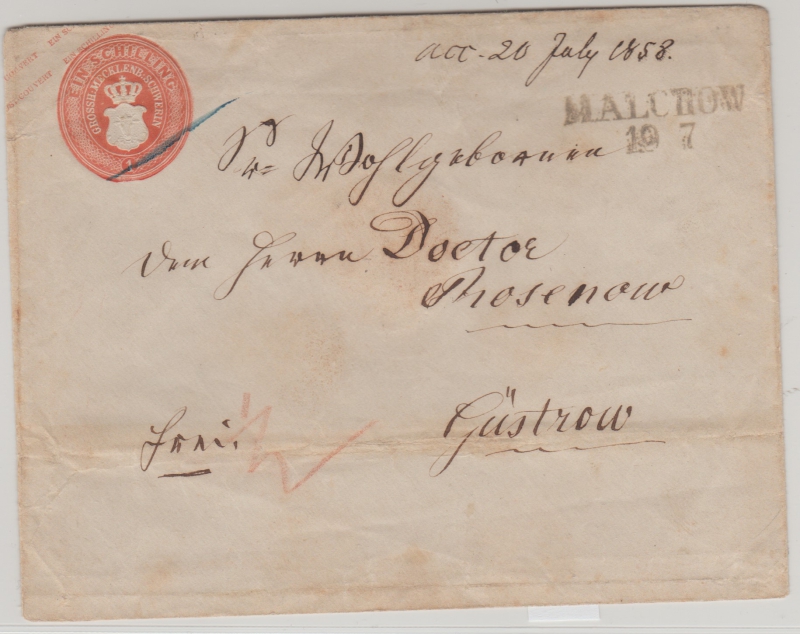 EIN SCHILLING
GROSSH. MECKLENB. SCHWERIN
acc. 20 July 1858.
MALCHOW
19 7
Sr. Wohlgebornen
dem Herrn Doctor
Rosenow
Güstrow
frei.